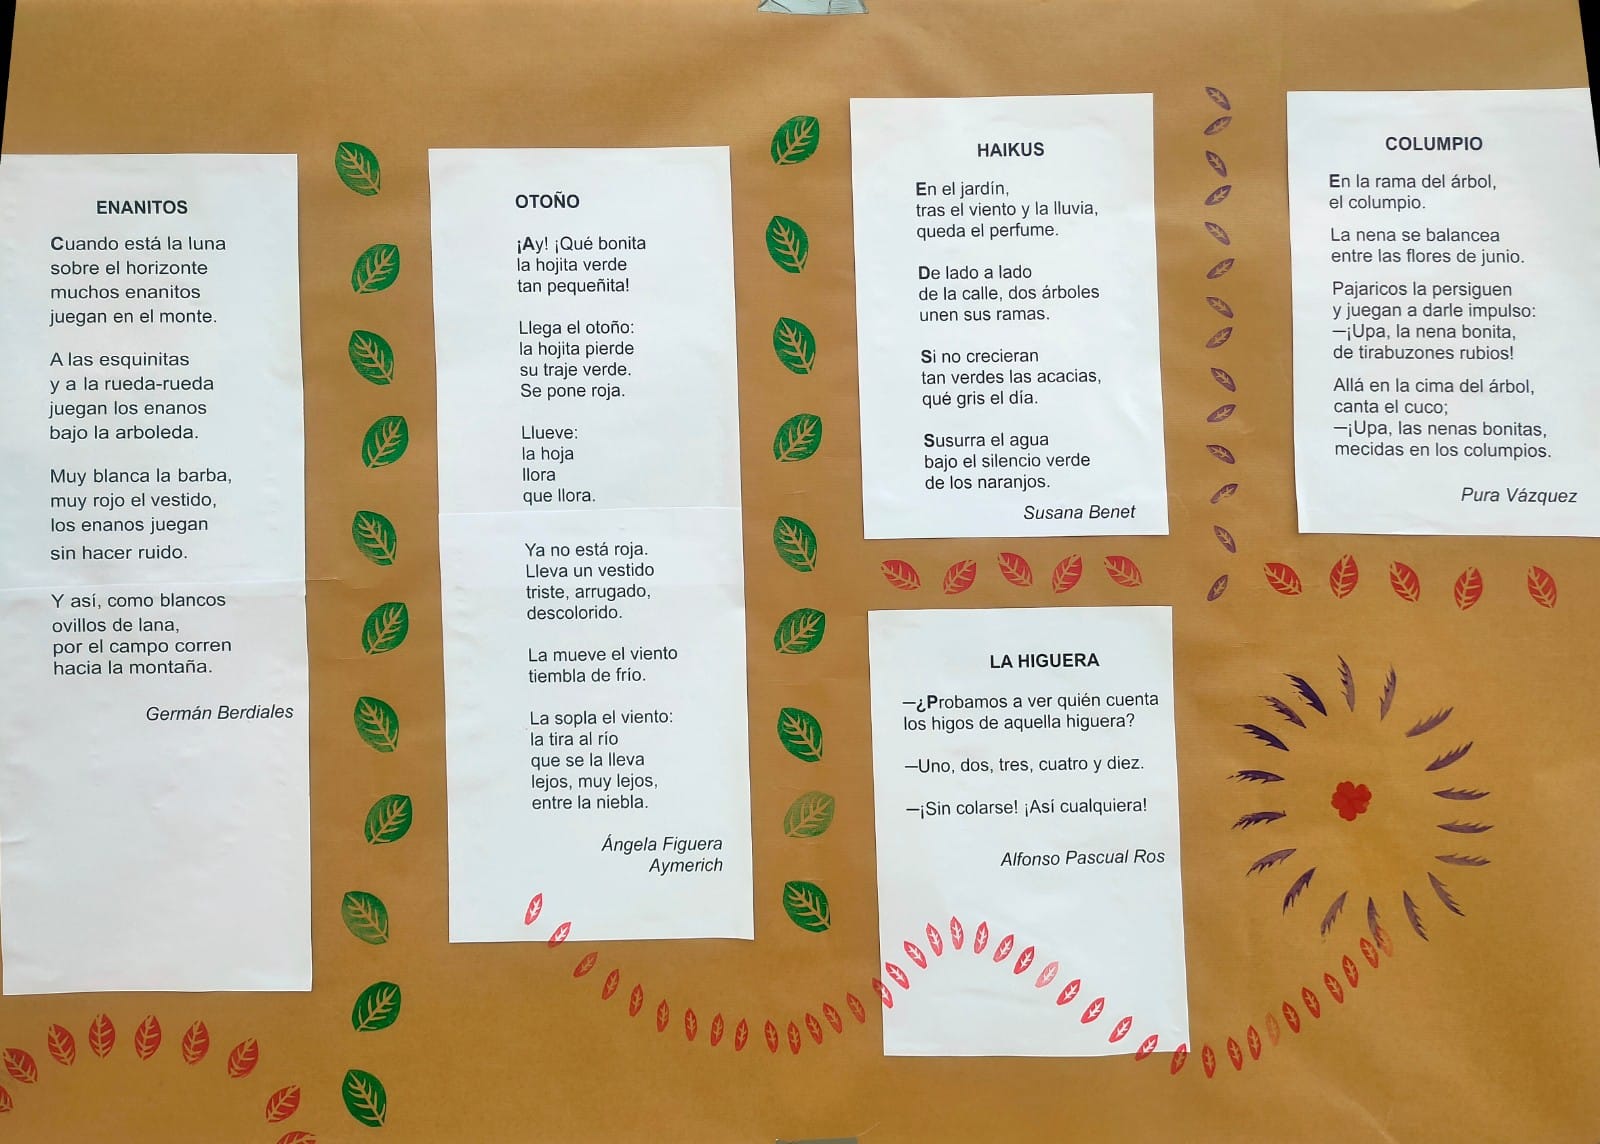 ENANITOS
Cuando está la luna
sobre el horizonte
muchos enanitos
juegan en el monte.
A las esquinitas
y a la rueda-rueda
juegan los enanos
bajo la arboleda.
Muy blanca la barba,
muy rojo el vestido,
los enanos juegan
sin hacer ruido.
Y así, como blancos
ovillos de lana,
por el campo corren
hacia la montaña.
Germán Berdiales
OTOÑO
¡Ay! ¡Qué bonita
la hojita verde
tan pequeñita!
Llega el otoño:
la hojita pierde
su traje verde.
Se pone roja.
Llueve:
la hoja
llora
que llora.
Ya no está roja.
Lleva un vestido
triste, arrugado,
descolorido.
La mueve el viento
tiembla de frío.
La sopla el viento:
la tira al río
que se la lleva
lejos, muy lejos,
entre la niebla.
Ángela Figuera
Aymerich
HAIKUS
En el jardín,
tras el viento y la lluvia,
queda el perfume.
De lado a lado
de la calle, dos árboles
unen sus ramas.
Si no crecieran
tan verdes las acacias,
qué gris el día.
Susurra el agua
bajo el silencio verde
de los naranjos.
Susana Benet
LA HIGUERA
—¿Probamos a ver quién cuenta
los higos de aquella higuera?
—Uno, dos, tres, cuatro y diez.
—¡Sin colarse! ¡Así cualquiera!
Alfonso Pascual Ros
COLUMPIO
En la rama del árbol,
el columpio.
La nena se balancea
entre las flores de junio.
Pajaricos la persiguen
y juegan a darle impulso:
—¡Upa, la nena bonita,
de tirabuzones rubios!
Allá en la cima del árbol,
canta el cuco;
—¡Upa, las nenas bonitas,
mecidas en los columpios.
Pura Vázquez